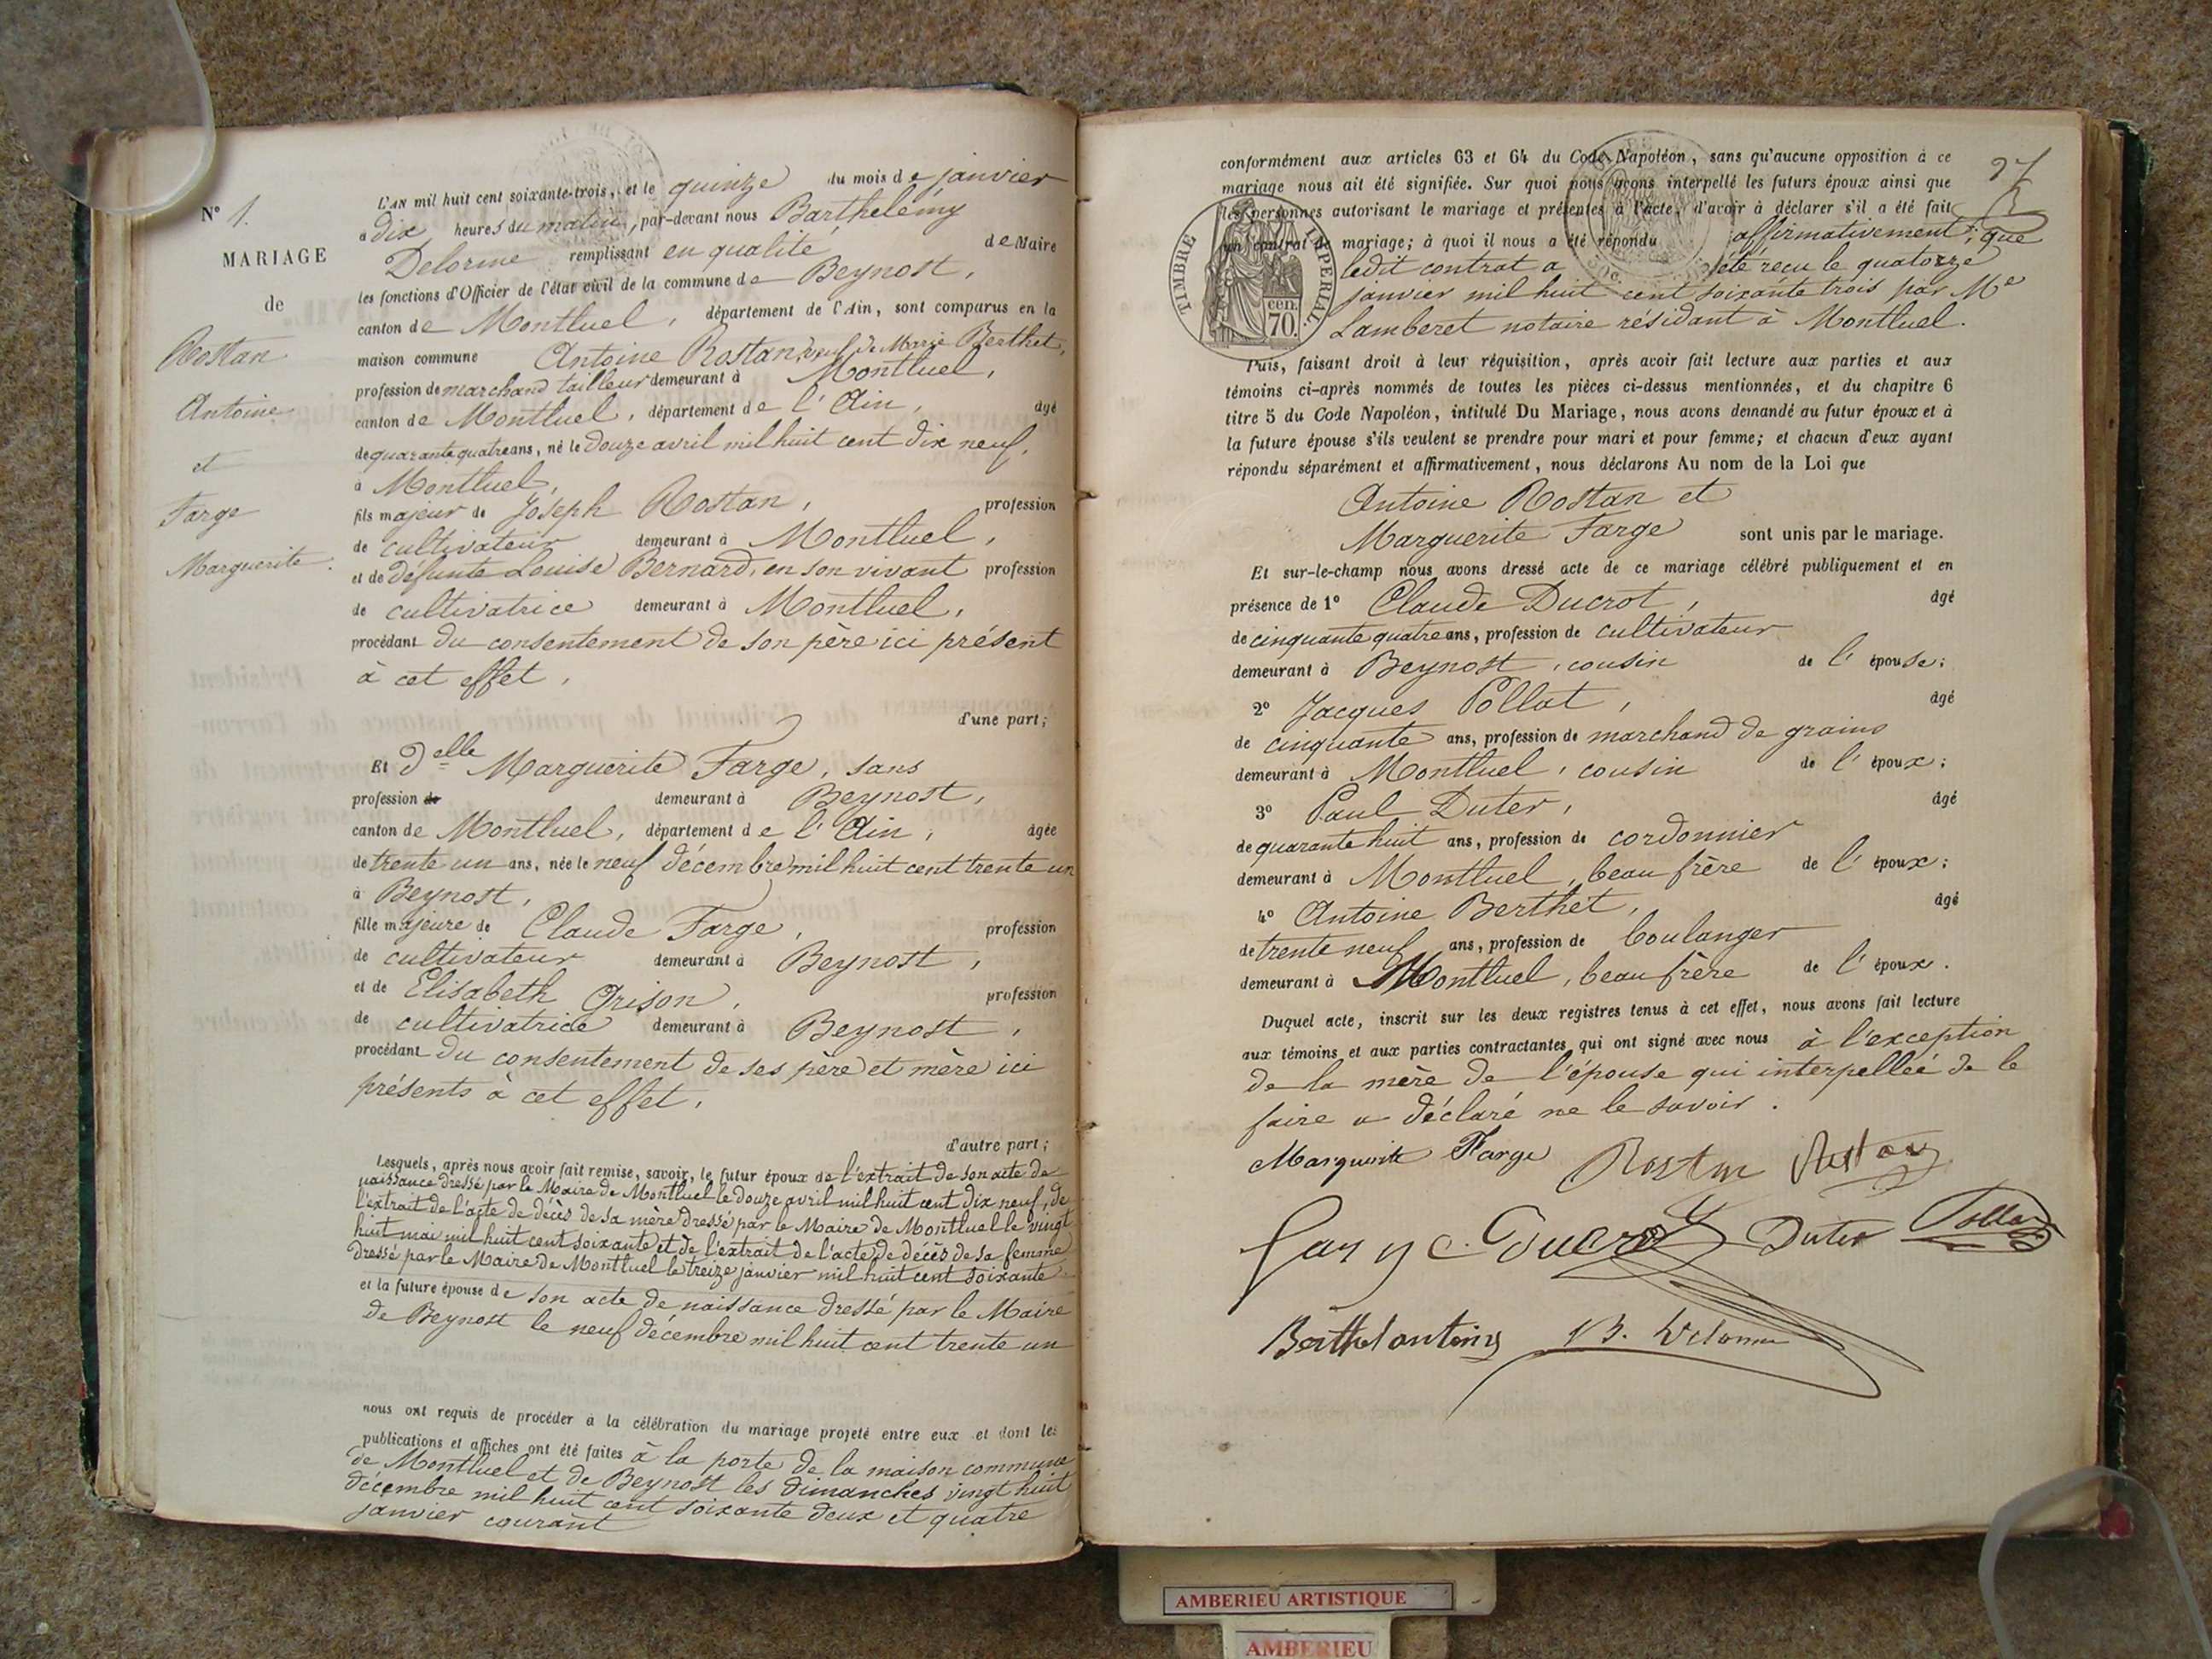 N° 1.
MARIAGE
de
Rostan
Antoine
et
Farge
Marguerite.
L'AN mil huit cent soixante-trois, et le quinze du mois de janvier
à dix heures du matin, par-devant nous Barthelémy
Delorme remplissant en qualité de Maire
les fonctions d'Officier de l'état civil de la commune de Beynost,
canton de Montluel, département de l'Ain, sont comparus en la
maison commune Antoine Rostan veuf de Marie Berthet,
profession de marchand tailleur demeurant à Montluel,
canton de Montluel, département de l'Ain, âgé
de quarante quatre ans, né le douze avril mil huit cent dix neuf,
à Montluel,
fils majeur de Joseph Rostan, profession
de cultivateur demeurant à Montluel,
et de défunte Louise Bernard, en son vivant profession
de cultivatrice demeurant à Montluel,
procédant du consentement de son père ici présent
à cet effet,
d'une part;
Et Delle Marguerite Farge, sans
profession de demeurant à Beynost,
canton de Montluel, département de l'Ain, âgée
de trente un ans, née le neuf décembre mil huit cent trente un
à Beynost,
fille majeure de Claude Farge, profession
de cultivateur demeurant à Beynost,
et de Elisabeth Grison, profession
de cultivatrice demeurant à Beynost,
procédant du consentement de ses père et mère ici
présents à cet effet,
d'autre part;
Lesquels, après nous avoir fait remise, savoir, le futur époux de l'extrait de son acte de
naissance dressé par le Maire de Montluel le douze avril mil huit cent dix neuf, de
l'extrait de l'acte de décès de sa mère dressé par le Maire de Montluel le vingt
huit mai mil huit cent soixante et de l'extrait de l'acte de décès de sa femme
dressé par le Maire de Montluel le treize janvier mil huit cent soixante
et la future épouse de son acte de naissance dressé par le Maire
de Beynost le neuf décembre mil huit cent trente un
nous ont requis de procéder à la célébration du mariage projeté entre eux et dont les
publications et affiches ont été faites à la porte de la maison commune
de Montluel et de Beynost les dimanches vingt huit
décembre mil huit cent soixante deux et quatre
janvier courant
conformément aux articles 63 et 64 du Code Napoléon, sans qu'aucune opposition à ce
mariage nous ait été signifiée. Sur quoi nous avons interpellé les futurs époux ainsi que
les personnes autorisant le mariage et présentes à l'acte, d'avoir à déclarer s'il a été fait
un contrat de mariage; à quoi il nous a été répondu affirmativement; que
ledit contrat a été reçu le quatorze
janvier mil huit cent soixante trois par Me
Lamberet notaire résidant à Montluel.
TIMBRE IMPERIAL.
cen.
70.
Puis, faisant droit à leur réquisition, après avoir fait lecture aux parties et aux
témoins ci-après nommés de toutes les pièces ci-dessus mentionnées, et du chapitre 6
titre 5 du Code Napoléon, intitulé Du Mariage, nous avons demandé au futur époux et à
la future épouse s'ils veulent se prendre pour mari et pour femme; et chacun d'eux ayant
répondu séparément et affirmativement, nous déclarons Au nom de la Loi que
Antoine Rostan et
Marguerite Farge sont unis par le mariage.
Et sur-le-champ nous avons dressé acte de ce mariage célébré publiquement et en
présence de 1° Claude Ducrot, âgé
de cinquante quatre ans, profession de cultivateur
demeurant à Beynost, cousin de l'épouse;
2° Jacques Pollat, âgé
de cinquante ans, profession de marchand de grains
demeurant à Montluel, cousin de l'époux;
3° Paul Duter, âgé
de quarante huit ans, profession de cordonnier
demeurant à Montluel, beau frère de l'époux;
4° Antoine Berthet, âgé
de trente neuf ans, profession de boulanger
demeurant à Montluel, beau frère de l'époux.
Duquel acte, inscrit sur les deux registres tenus à cet effet, nous avons fait lecture
aux témoins et aux parties contractantes qui ont signé avec nous à l'exception
de la mère de l'épouse qui interpellée de le
faire a déclaré ne le savoir.
Marguerite Farge Rostan Rostan
C. Ducrot Duter Pollat
Berthet antoine B. Delorme
AMBERIEU ARTISTIQUE
AMBERIEU